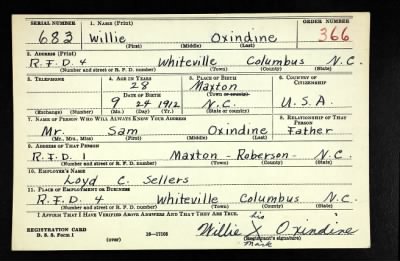 SERIAL NUMBER 1. NAME (Print) ORDER NUMBER
683 Willie Oxindine 366
(First) (Middle) (Last)
2. ADDRESS (Print)
R.F.D. 4 Whiteville Columbus N.C.
(Number and street or R. F. D. number) (Town) (County) (State)
3. TELEPHONE 4. AGE IN YEARS 5. PLACE OF BIRTH 6. COUNTRY OF CITIZENSHIP
28 Maxton
DATE OF BIRTH (Town or county)
9 24 1912 N.C. U.S.A.
(Exchange) (Number) (Mo.) (Day) (Yr.) (State or country)
7. NAME OF PERSON WHO WILL ALWAYS KNOW YOUR ADDRESS 8. RELATIONSHIP OF THAT PERSON
Mr. Sam Oxindine Father
(Mr., Mrs., Miss) (First) (Middle) (Last)
9. ADDRESS OF THAT PERSON
R.F.D. Maxton - Roberson - N.C.
(Number and street or R. F. D. number) (Town) (County) (State)
10. EMPLOYER'S NAME
Loyd C. Sellers
11. PLACE OF EMPLOYMENT OR BUSINESS
R.F.D. 4 Whiteville Columbus N.C.
(Number and street or R. F. D. number) (Town) (County) (State)
I AFFIRM THAT I HAVE VERIFIED ABOVE ANSWERS AND THAT THEY ARE TRUE.
his
REGISTRATION CARD Willie X Oxindine
D. S. S. Form 1 (over) 16-17105 (Registrant's signature)
Mark